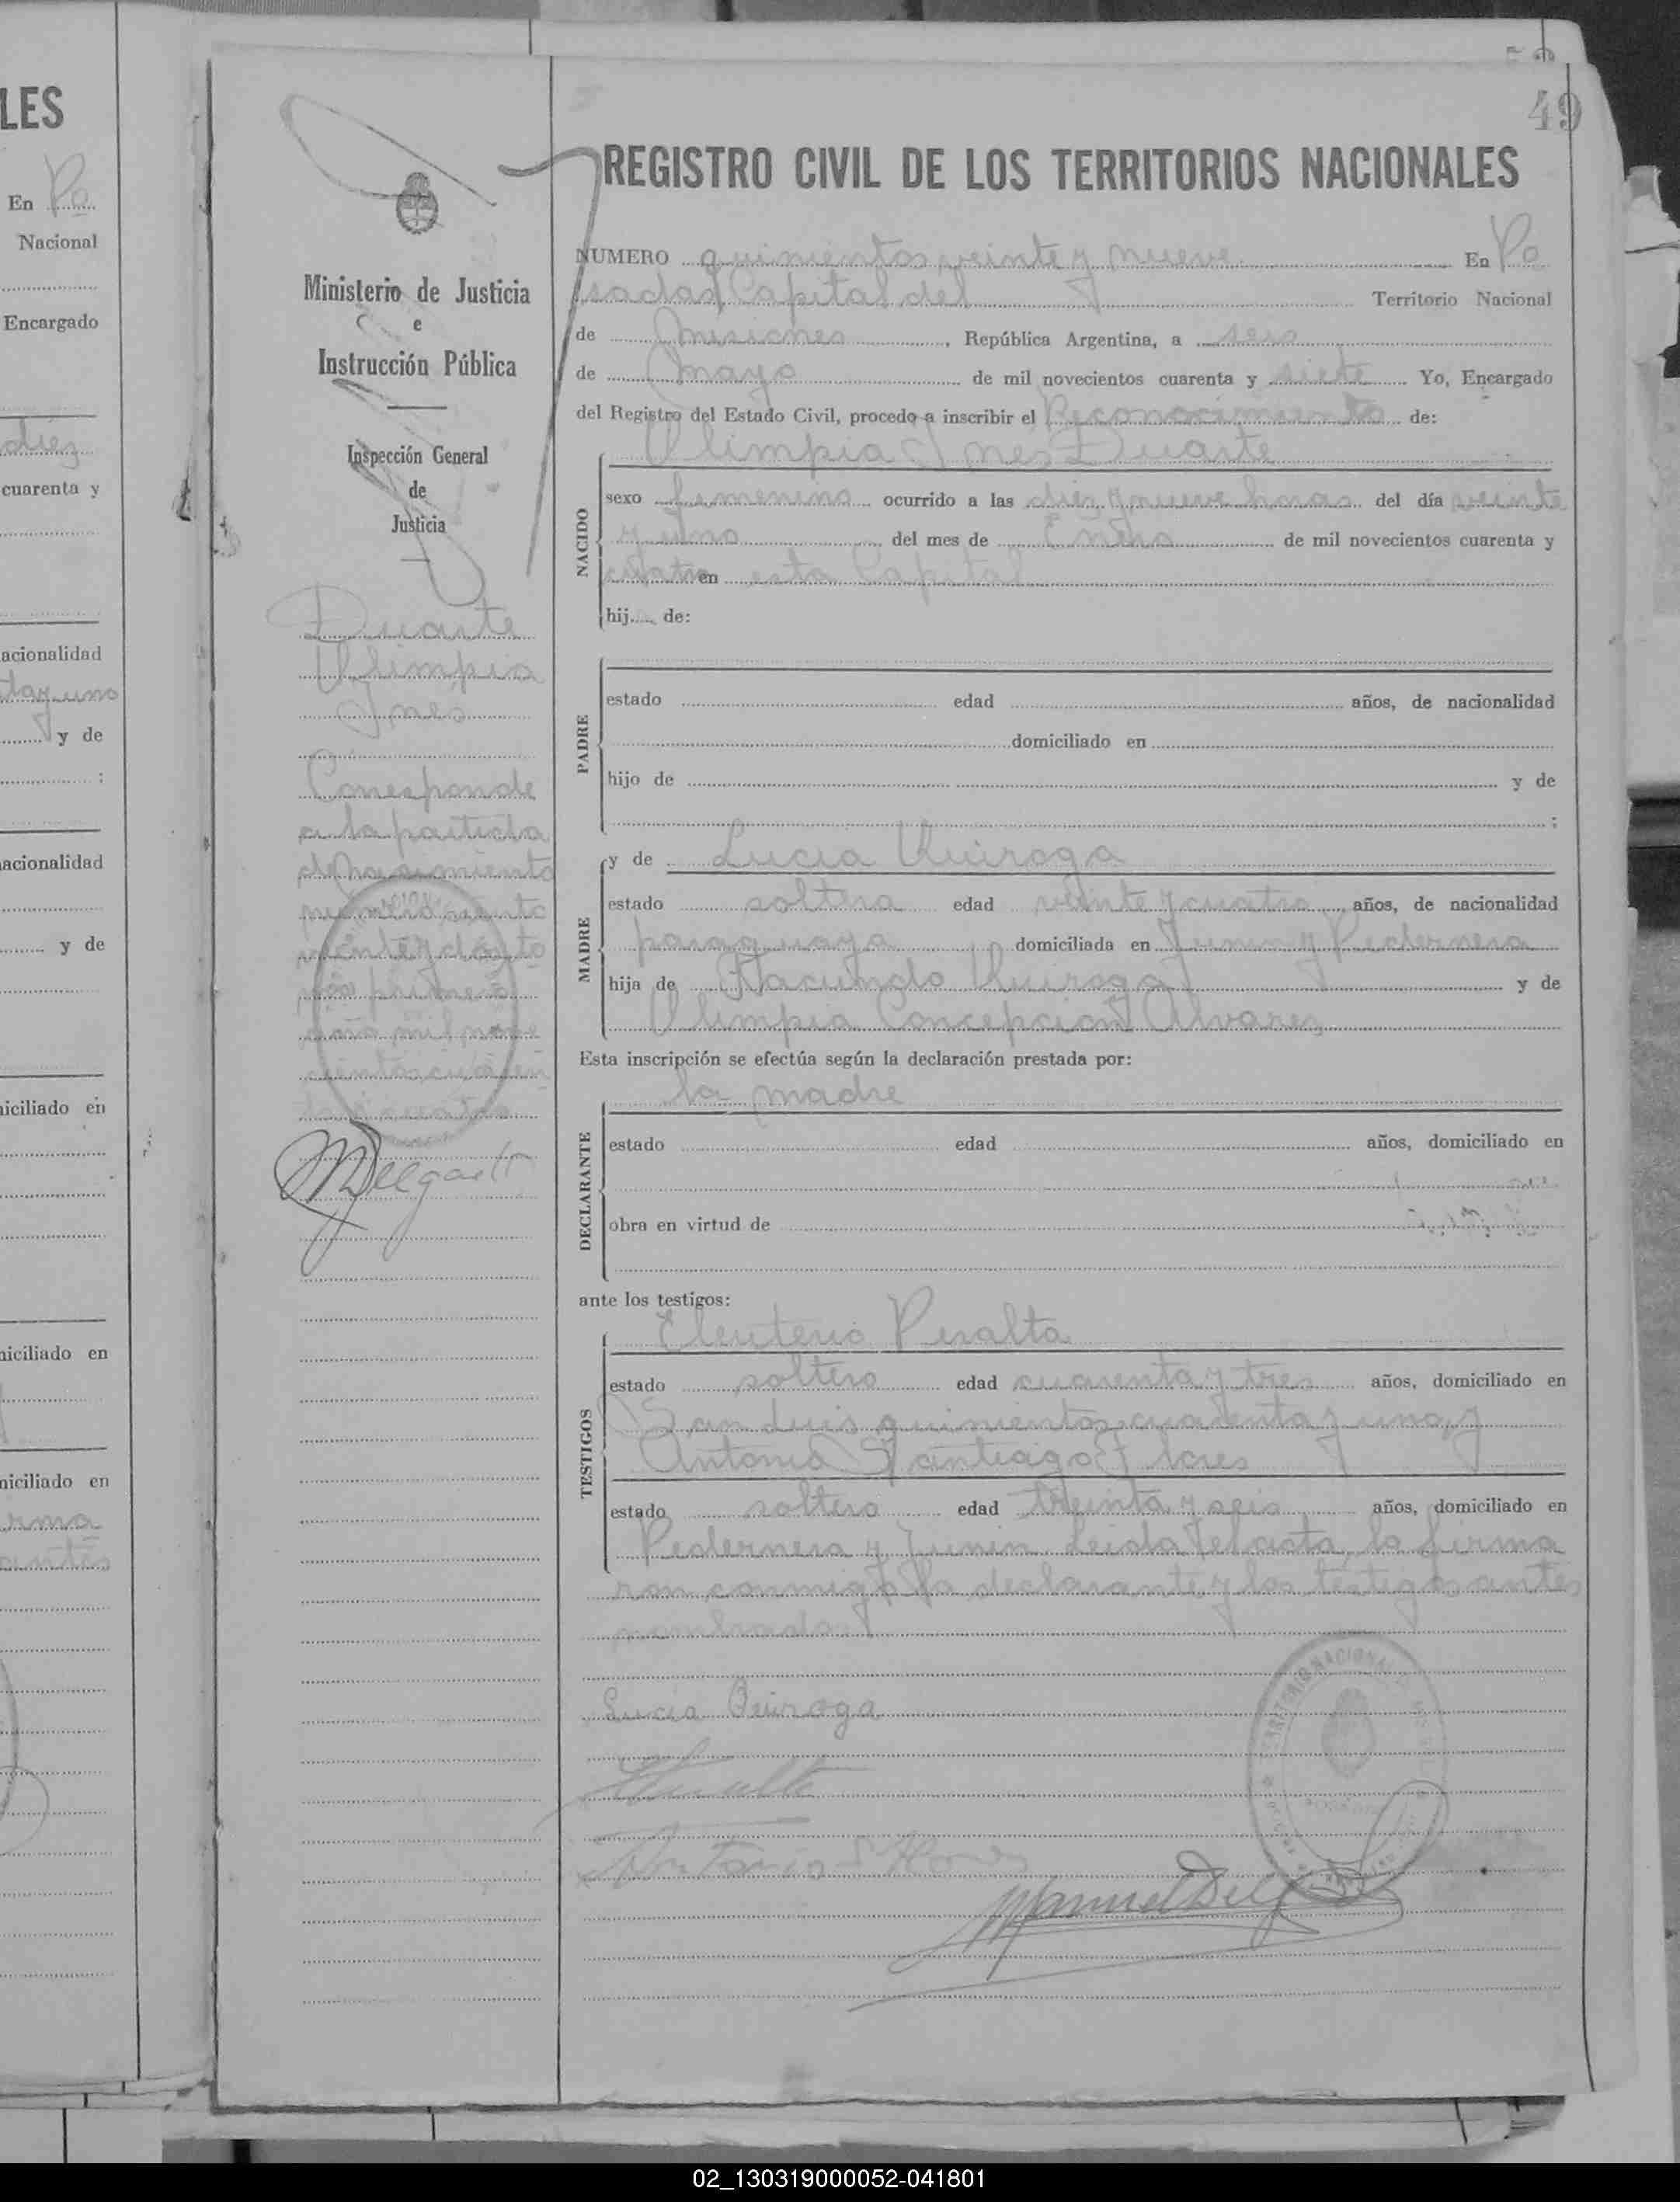 LES
En Po
Nacional
Encargado
diez
cuarenta y
acionalidad
ta y uno
y de
:
acionalidad
y de
iciliado en
iciliado en
niciliado en
firma
antes
49
REGISTRO CIVIL DE LOS TERRITORIOS NACIONALES
Ministerio de Justicia
e
Instrucción Pública
Inspección General
de
Justicia
Duarte
Olimpia
Inés
Corresponde
a la partida
de nacimiento
número ciento
veinte y dos, to
mo primero
año mil nove
cientos cuaren
ta y cuatro
MDelgado
NUMERO quinientos veinte y nueve En Po
sadas, Capital del Territorio Nacional
de Misiones, República Argentina, a seis
de Mayo de mil novecientos cuarenta y siete Yo, Encargado
del Registro del Estado Civil, procedo a inscribir el Reconocimiento de:
Olimpia Inés Duarte
NACIDO
sexo femenino ocurrido a las diez y nueve horas del día veinte
y uno del mes de Enero de mil novecientos cuarenta y
cuatro en esta Capital
hij.... de:
PADRE
estado edad años, de nacionalidad
domiciliado en
hijo de y de
;
MADRE
y de Lucia Quiroga
estado soltera edad veinte y cuatro años, de nacionalidad
paraguaya domiciliada en Junin y Pedernera
hija de Facundo Quiroga y de
Olimpia Concepción Alvarez
Esta inscripción se efectúa según la declaración prestada por:
la madre
DECLARANTE
estado edad años, domiciliado en
obra en virtud de
ante los testigos:
TESTIGOS
Eleuterio Peralta
estado soltero edad cuarenta y tres años, domiciliado en
San Luis quinientos cuarenta y uno, y
Antonio Santiago Flores
estado soltero edad treinta y seis años, domiciliado en
Pedernera y Junin. Leida el acta, la firma
ron conmigo la declarante y los testigos antes
nombrados.
Lucia Quiroga
Antonio S Flores
Manuel Delgado
02_130319000052-041801